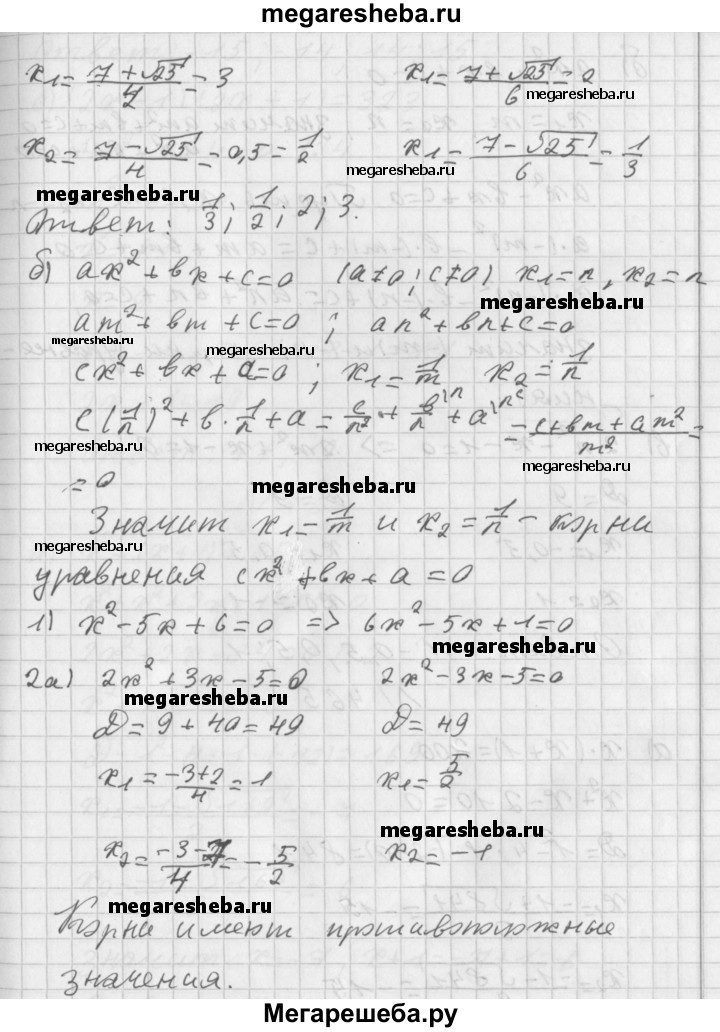 megaresheba.ru
x₁ = (7 + √25)/4 = 3 x₁ = (7 + √25)/6 = 2
megaresheba.ru
x₂ = (7 − √25)/4 = 0,5 = 1/2 x₁ = (7 − √25)/6 = 1/3
megaresheba.ru
megaresheba.ru megaresheba.ru
Ответ: 1/3; 1/2; 2; 3.
б) ax² + bx + c = 0 (a≠0; c≠0) x₁ = n, x₂ = n
megaresheba.ru
am² + bm + c = 0; an² + bn + c = 0
megaresheba.ru megaresheba.ru
cx² + bx + a = 0; x₁ = 1/m x₂ = 1/n
c(1/n)² + b · 1/n + a = c/n² + b/n + a = (c + bm + am²)/m² =
megaresheba.ru megaresheba.ru
= 0
megaresheba.ru
Значит x₁ = 1/m и x₂ = 1/n – корни
megaresheba.ru
уравнения cx² + bx + a = 0
1) x² − 5x + 6 = 0 => 6x² − 5x + 1 = 0
megaresheba.ru
2а) 2x² + 3x − 5 = 0 2x² − 3x − 5 = 0
megaresheba.ru
D = 9 + 40 = 49 D = 49
x₁ = (−3+2)/4 = 1 x₁ = 5/2
megaresheba.ru
x₂ = (−3−7)/4 = −5/2 x₂ = −1
megaresheba.ru
Корни имеют противоположные
значения.
Мегарешеба.ру